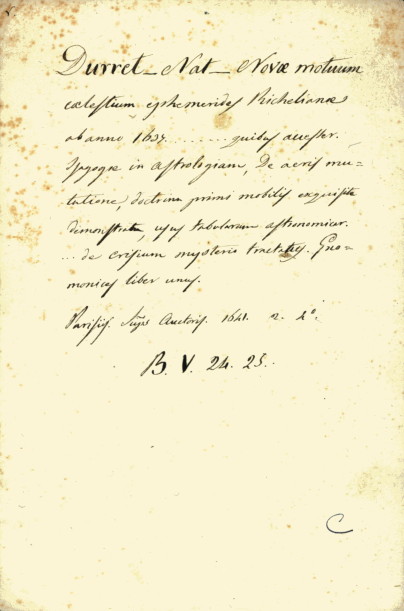 Durret_ Nat_ Novæ motuum
cælestium ephemerides Richelianæ
ab anno 1637......... quibus accesser.
Isagoge in astrologiam, De aeris mu-
tatione, doctrina primi mobilis exquisite
demonstrata, usus tabularum astronomicar.
... de crisium mysterio tractatus. Gno-
monices liber unus.
Parisiis. Auctoris. 1641. 2. 4º.
B. V. 24. 25.
C